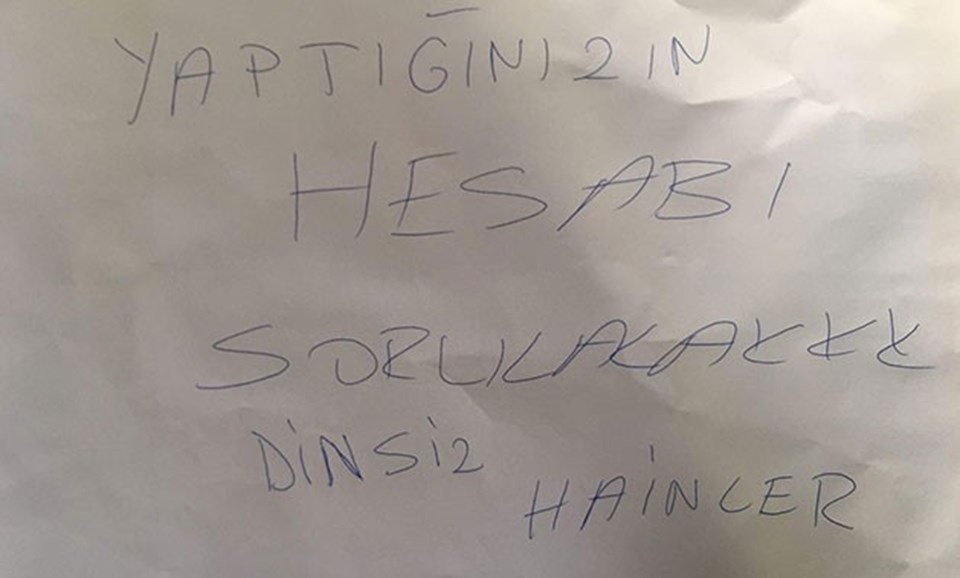 YAPTIĞINIZIN
HESABI
SORULACAKKK
DİNSİZ
HAİNLER